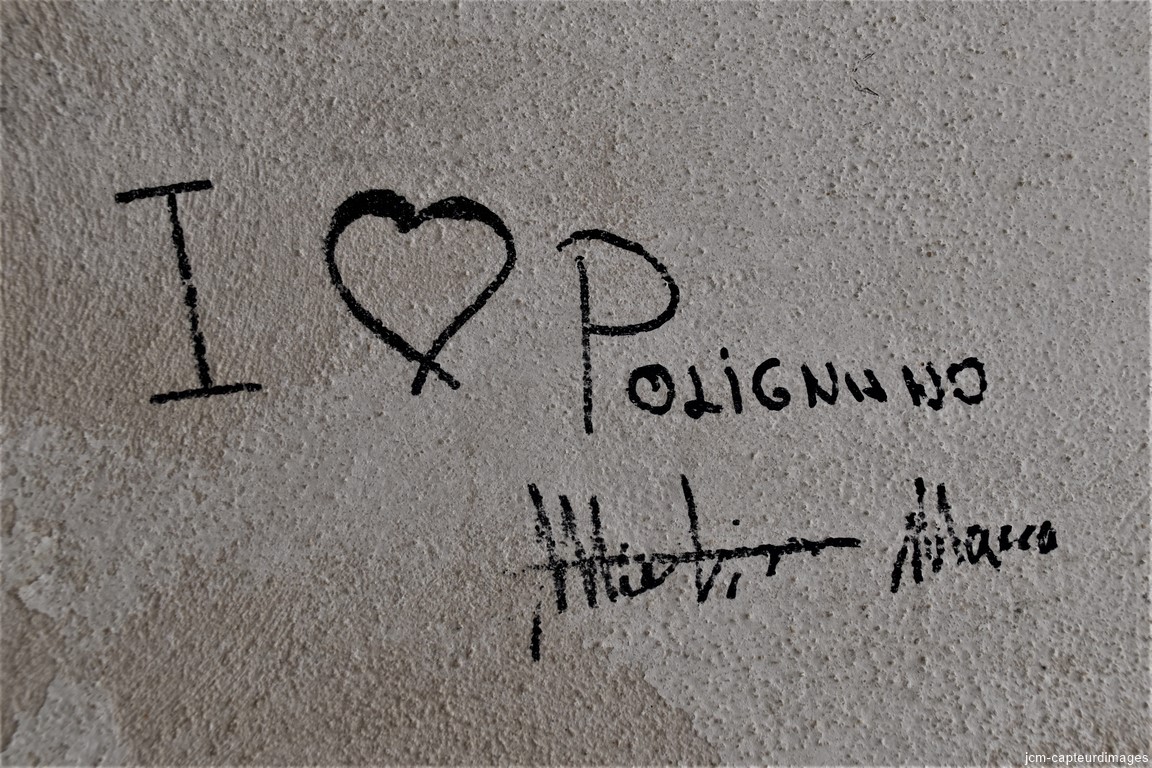 I ♥ POLiGNANO
jcm-capteurdimages